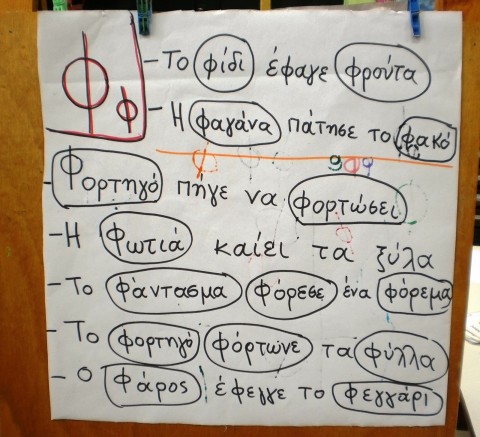 Φ φ
- Το φίδι έφαγε φρούτα
- Η φαγάνα πάτησε το φακό
- Φορτηγό πήγε να φορτώσει
- Η Φωτιά καίει τα ξύλα
- Το φάντασμα φόρεσε ένα φόρεμα
- Το φορτηγό φόρτωνε τα φύλλα
- Ο Φάρος έφεγγε το φεγγάρι